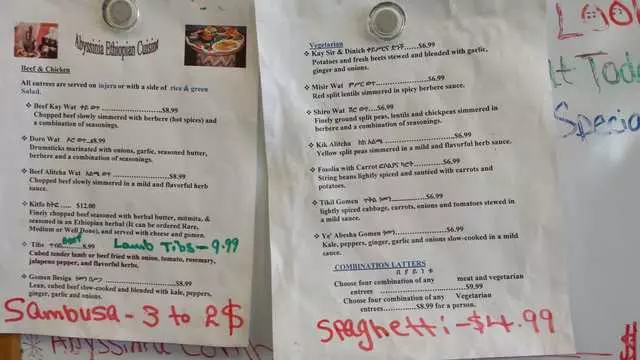 Abyssinia Ethiopian Cuisine
Beef & Chicken
All entrees are served on injera or with a side of rice & green
Salad.
Beef Kay Wat ቀይ ወጥ ........$8.99
Chopped beef slowly simmered with berbere (hot spices) and
a combination of seasonings.
Doro Wat ዶሮ ወጥ...$8.99
Drumsticks marinated with onions, garlic, seasoned butter,
berbere and a combination of seasonings.
Beef Alitcha Wat ........$8.99
Chopped beef slowly simmered in a mild and flavorful herb
sauce.
Kitfo ክትፎ..... $12.00
Finely chopped beef seasoned with herbal butter, mitmita, &
seasoned in an Ethiopian herbal (It can be ordered Rare,
Medium or Well Done), and served with cheese and gomen.
Tibs Beef 8.99 Lamb Tibs - 9.99
Cubed tender lamb or beef fried with onion, tomato, rosemary,
jalapeno papper, and flavorful herbs.
Gomen Besiga ........$8.99
Lean, cubed beef slow-cooked and blended with kale, peppers,
ginger, garlic and onions.
Sambusa - 3 to 2$
Vegetarian
Kay Sir & Dinich ........$6.99
Potatoes and fresh beets stewed and blended with garlic,
ginger and onions.
Misir Wat ምስር ወጥ........$6.99
Red split lentils simmered in spicy berbere sauce.
Shiro Wat ሽሮ ወጥ....$6.99
Finely ground split peas, lentils and chickpeas simmered in
berbere and a combination of seasonings.
Kik Alitcha ........$6.99
Yellow split peas simmered in a mild and flavorful herb sauce.
Fosolia with Carrot ........$6.99
String beans lightly spiced and sautéed with carrots and
potatoes.
Tikil Gomen ........$6.99
lightly spiced cabbage, carrots, onions and tomatoes stewed in
a mild sauce.
Ye' Abesha Gomen ........$6.99
Kale, peppers, ginger, garlic and onions slow-cooked in a mild
sauce.
COMBINATION LATTERS
Choose four combination of any meat and vegetarian
entrees ........$9.99
Choose four combination of any Vegetarian
entrees........$8.99 for a person.
Spaghetti - $4.99
Look
Toda
Specia
Abyssinia